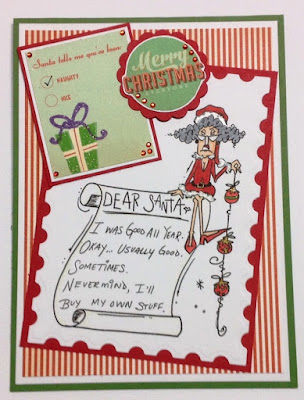 Santa tells me you've been:
NAUGHTY
NICE
Merry
CHRISTMAS
DEAR SANTA,
I WAS GOOD ALL YEAR.
OKAY... USUALLY GOOD.
SOMETIMES.
NEVERMIND, I'LL
BUY MY OWN STUFF.